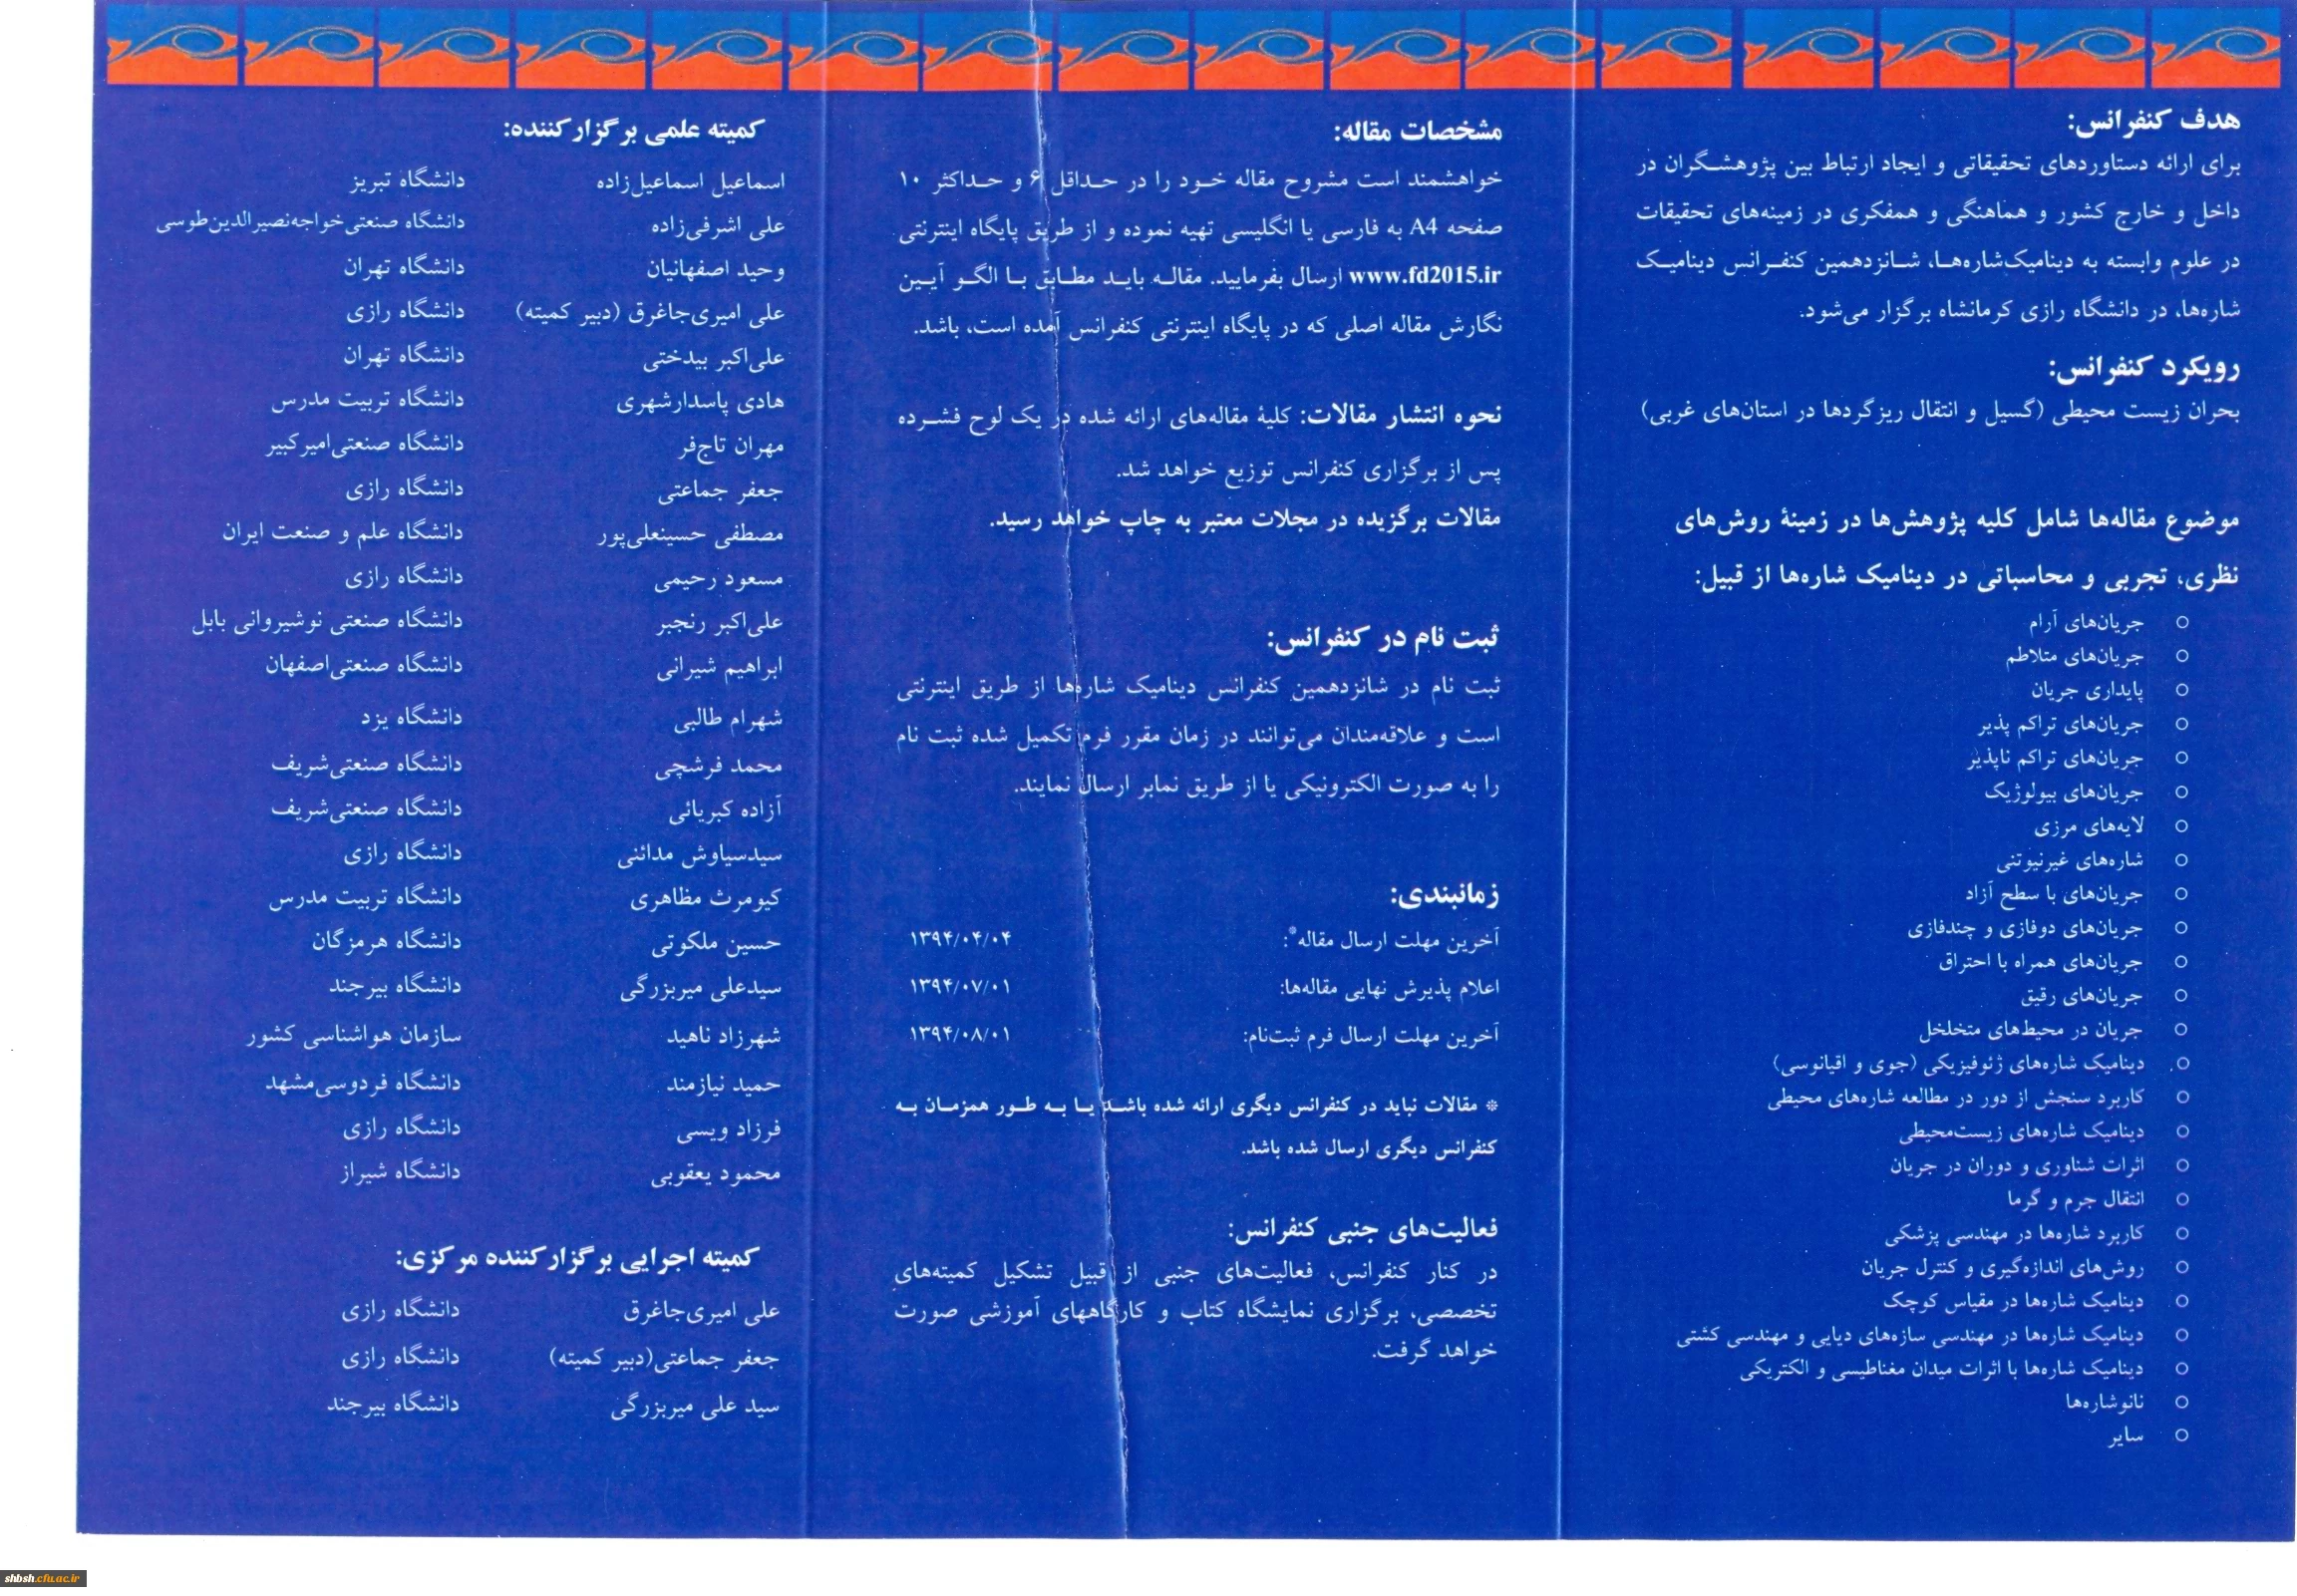 هدف کنفرانس:
برای ارائه دستاوردهای تحقیقاتی و ایجاد ارتباط بین پژوهشگران در
داخل و خارج کشور و هماهنگی و همفکری در زمینه‌های تحقیقات
در علوم وابسته به دینامیک‌شاره‌هـا، شـانزدهمین کنفـرانس دینامیـک
شاره‌ها، در دانشگاه رازی کرمانشاه برگزار می‌شود.
رویکرد کنفرانس:
بحران زیست محیطی (گسیل و انتقال ریزگردها در استان‌های غربی)
موضوع مقاله‌ها شامل کلیه پژوهش‌ها در زمینهٔ روش‌های
نظری، تجربی و محاسباتی در دینامیک شاره‌ها از قبیل:
○ جریان‌های آرام
○ جریان‌های متلاطم
○ پایداری جریان
○ جریان‌های تراکم پذیر
○ جریان‌های تراکم ناپذیر
○ جریان‌های بیولوژیک
○ لایه‌های مرزی
○ شاره‌های غیرنیوتنی
○ جریان‌های با سطح آزاد
○ جریان‌های دوفازی و چندفازی
○ جریان‌های همراه با احتراق
○ جریان‌های رقیق
○ جریان در محیط‌های متخلخل
○ دینامیک شاره‌های ژئوفیزیکی (جوی و اقیانوسی)
○ کاربرد سنجش از دور در مطالعه شاره‌های محیطی
○ دینامیک شاره‌های زیست‌محیطی
○ اثرات شناوری و دوران در جریان
○ انتقال جرم و گرما
○ کاربرد شاره‌ها در مهندسی پزشکی
○ روش‌های اندازه‌گیری و کنترل جریان
○ دینامیک شاره‌ها در مقیاس کوچک
○ دینامیک شاره‌ها در مهندسی سازه‌های دیایی و مهندسی کشتی
○ دینامیک شاره‌ها با اثرات میدان مغناطیسی و الکتریکی
○ نانوشاره‌ها
○ سایر
مشخصات مقاله:
خواهشمند است مشروح مقاله خـود را در حـداقل ۶ و حـداکثر ۱۰
صفحه A4 به فارسی یا انگلیسی تهیه نموده و از طریق پایگاه اینترنتی
www.fd2015.ir ارسال بفرمایید. مقالـه بایـد مطـابق بـا الگـو آیـین
نگارش مقاله اصلی که در پایگاه اینترنتی کنفرانس آمده است، باشد.
نحوه انتشار مقالات: کلیهٔ مقاله‌های ارائه شده در یک لوح فشـرده
پس از برگزاری کنفرانس توزیع خواهد شد.
مقالات برگزیده در مجلات معتبر به چاپ خواهد رسید.
ثبت نام در کنفرانس:
ثبت نام در شانزدهمین کنفرانس دینامیک شاره‌ها از طریق اینترنتی
است و علاقه‌مندان می‌توانند در زمان مقرر فرم تکمیل شده ثبت نام
را به صورت الکترونیکی یا از طریق نمابر ارسال نمایند.
زمانبندی:
آخرین مهلت ارسال مقاله*: ۱۳۹۴/۰۴/۰۴
اعلام پذیرش نهایی مقاله‌ها: ۱۳۹۴/۰۷/۰۱
آخرین مهلت ارسال فرم ثبت‌نام: ۱۳۹۴/۰۸/۰۱
* مقالات نباید در کنفرانس دیگری ارائه شده باشـد یـا بـه طـور همزمـان بـه
کنفرانس دیگری ارسال شده باشد.
فعالیت‌های جنبی کنفرانس:
در کنار کنفرانس، فعالیت‌های جنبی از قبیل تشکیل کمیته‌های
تخصصی، برگزاری نمایشگاه کتاب و کارگاههای آموزشی صورت
خواهد گرفت.
کمیته علمی برگزارکننده:
اسماعیل اسماعیل‌زاده دانشگاه تبریز
علی اشرفی‌زاده دانشگاه صنعتی‌خواجه‌نصیرالدین‌طوسی
وحید اصفهانیان دانشگاه تهران
علی امیری‌جاغرق (دبیر کمیته) دانشگاه رازی
علی‌اکبر بیدختی دانشگاه تهران
هادی پاسدارشهری دانشگاه تربیت مدرس
مهران تاج‌فر دانشگاه صنعتی‌امیرکبیر
جعفر جماعتی دانشگاه رازی
مصطفی حسینعلی‌پور دانشگاه علم و صنعت ایران
مسعود رحیمی دانشگاه رازی
علی‌اکبر رنجبر دانشگاه صنعتی نوشیروانی بابل
ابراهیم شیرانی دانشگاه صنعتی‌اصفهان
شهرام طالبی دانشگاه یزد
محمد فرشچی دانشگاه صنعتی‌شریف
آزاده کبریائی دانشگاه صنعتی‌شریف
سیدسیاوش مدائنی دانشگاه رازی
کیومرث مظاهری دانشگاه تربیت مدرس
حسین ملکوتی دانشگاه هرمزگان
سیدعلی میربزرگی دانشگاه بیرجند
شهرزاد ناهید سازمان هواشناسی کشور
حمید نیازمند دانشگاه فردوسی‌مشهد
فرزاد ویسی دانشگاه رازی
محمود یعقوبی دانشگاه شیراز
کمیته اجرایی برگزارکننده مرکزی:
علی امیری‌جاغرق دانشگاه رازی
جعفر جماعتی(دبیر کمیته) دانشگاه رازی
سید علی میربزرگی دانشگاه بیرجند
shbsh.cfu.ac.ir